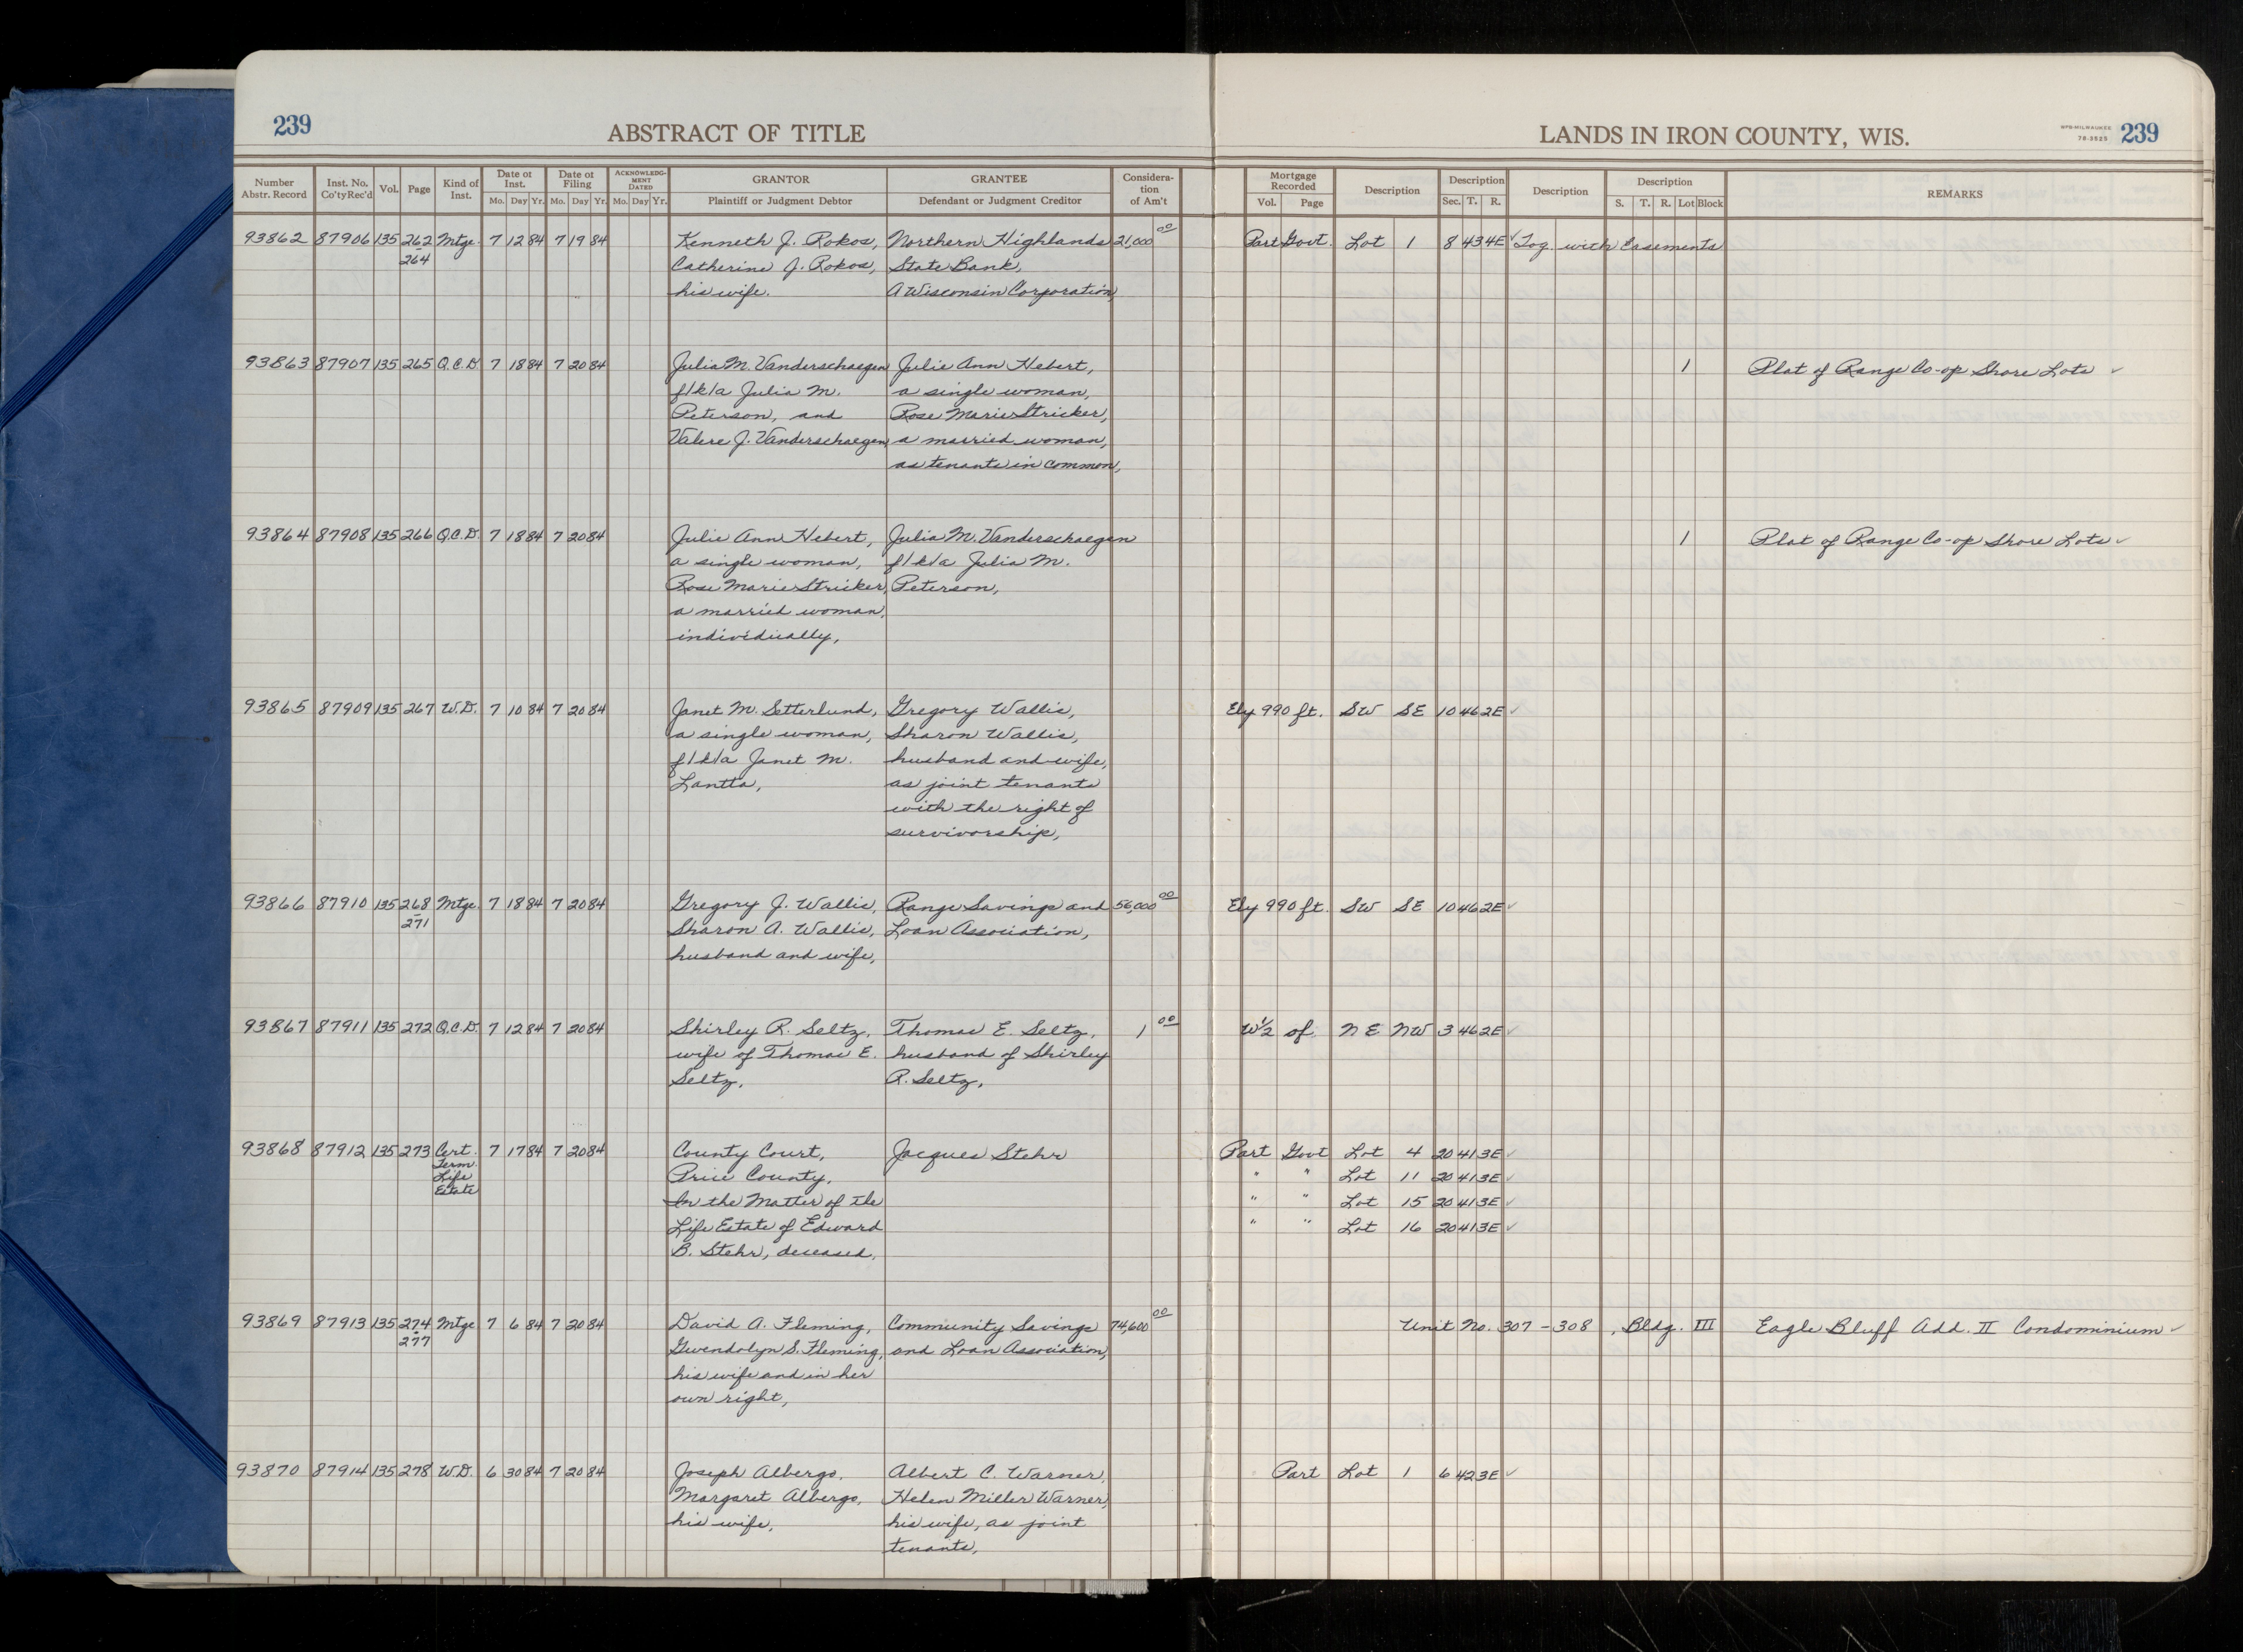 239
ABSTRACT OF TITLE
LANDS IN IRON COUNTY, WIS.
WPB-MILWAUKEE
78-3523
239
Number Abstr. Record
Inst. No. Co'ty Rec'd
Vol.
Page
Kind of Inst.
Date of Inst. Mo. Day Yr.
Date of Filing Mo. Day Yr.
ACKNOWLEDGMENT DATED Mo. Day Yr.
GRANTOR
Plaintiff or Judgment Debtor
GRANTEE
Defendant or Judgment Creditor
Consideration of Am't
Mortgage Recorded Vol. Page
Description
Description Sec. T. R.
Description
Description S. T. R. Lot Block
REMARKS
93862 87906 135 262 Mtge. 7 12 84 7 19 84 Kenneth J. Rokos, Northern Highlands 21,000 00 Part Govt. Lot 1 8 43 4E ✓ Tog. with Easements
264 Catherine J. Rokos, State Bank,
his wife. A Wisconsin Corporation,
93863 87907 135 265 Q.C.D. 7 18 84 7 20 84 Julia M. Vanderschaegen Julie Ann Hebert, 1 Plat of Range Co-op Shore Lots ✓
f/k/a Julia M. a single woman,
Peterson, and Rose Marie Stricker,
Valere J. Vanderschaegen, a married woman,
as tenants in common,
93864 87908 135 266 Q.C.D. 7 18 84 7 20 84 Julie Ann Hebert, Julia M. Vanderschaegen 1 Plat of Range Co-op Shore Lots ✓
a single woman, f/k/a Julia M.
Rose Marie Stricker, Peterson,
a married woman,
individually,
93865 87909 135 267 W.D. 7 10 84 7 20 84 Janet M. Setterlund, Gregory Wallis, Ely 990 ft. SW SE 10 46 2E ✓
a single woman, Sharon Wallis,
f/k/a Janet M. husband and wife,
Lantta, as joint tenants
with the right of
survivorship,
93866 87910 135 268 Mtge. 7 18 84 7 20 84 Gregory J. Wallis, Range Savings and 56,000 00 Ely 990 ft. SW SE 10 46 2E ✓
271 Sharon A. Wallis, Loan Association,
husband and wife,
93867 87911 135 272 Q.C.D. 7 12 84 7 20 84 Shirley R. Seltz, Thomas E. Seltz, 1 00 W½ of NE NW 3 46 2E ✓
wife of Thomas E. husband of Shirley
Seltz, R. Seltz,
93868 87912 135 273 Cert. 7 17 84 7 20 84 County Court, Jacques Stehr Part Govt Lot 4 20 41 3E ✓
Term. Price County, " " Lot 11 20 41 3E ✓
Life In the Matter of the " " Lot 15 20 41 3E ✓
Estate Life Estate of Edward " " Lot 16 20 41 3E ✓
B. Stehr, deceased,
93869 87913 135 274 Mtge 7 6 84 7 20 84 David A. Fleming, Community Savings 74,600 00 Unit No. 307 - 308, Bldg. III Eagle Bluff Add. II Condominium ✓
277 Gwendolyn S. Fleming, and Loan Association,
his wife and in her
own right,
93870 87914 135 278 W.D. 6 30 84 7 20 84 Joseph Albergo, Albert C. Warner, Part Lot 1 6 42 3E ✓
Margaret Albergo, Helen Miller Warner,
his wife, his wife, as joint
tenants,